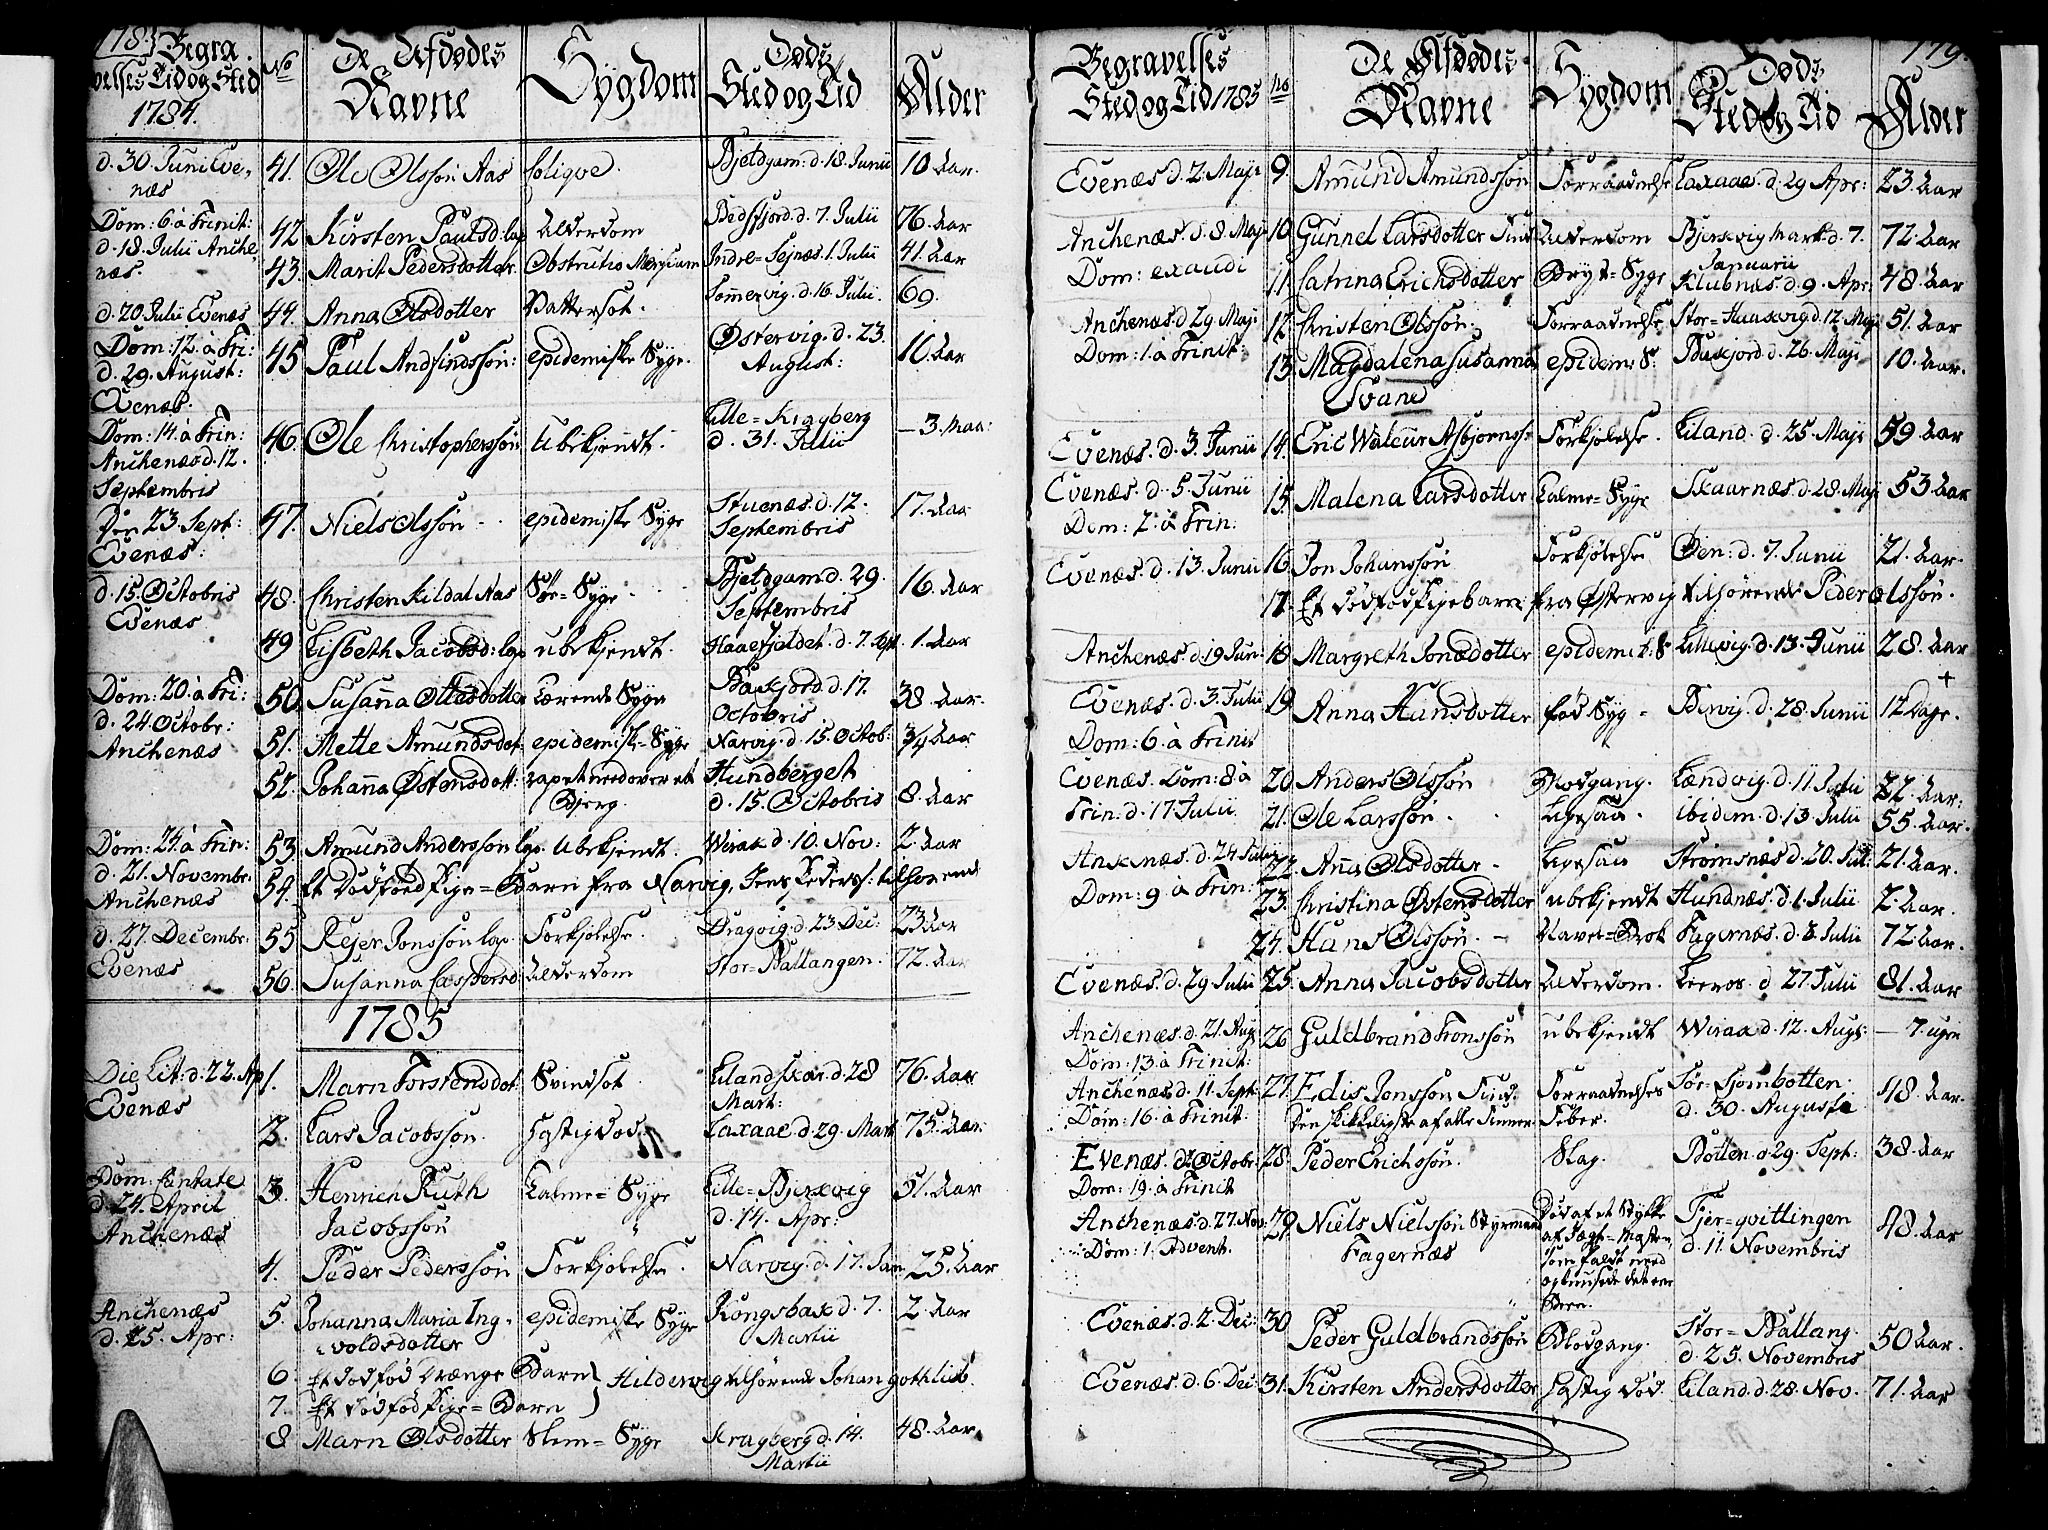 178
Begra
velses Tid og Sted
1784.
No
De Afdødes
Navne
Sygdom
Døds
Sted og Tid
Alder
d. 30 Juni Eve,
næs
41. Ole Olssøn Aas Colique. Bjetdgam: d. 18 Junii 10 Aar.
Dom: 6 à Trinit:
d. 18. Julii Anche
næs.
42 Kirsten Paulsd: lap Alderdom Bedsfjord. d. 7. Julii 76. Aar
43. Marit Pedersdotter. Obstrutio Mensium Indre=Sejnæs. 1. Julii 41. Aar
d. 20 Julii Evenæs
44. Anna Olsdotter Vattersot. Sommervig. d. 16 Julii. 69.
Dom: 12. à Tri:
d. 29. August:
Evenæs.
45 Paul Andfindssøn: epidemiske Syge. Østervig. d. 23.
August:
Dom: 14. à Trin:
Anchenæs d. 12.
Septembris
46. Ole Christopherssøn Ubekjendt. Lille=Kragberg
d. 31. Julii
- 3. Maa:
Den 23. Sept:
Evenæs.
47. Niels Olssøn - - epidemiske Syge Stuenæs. d. 12.
Septembris
17. Aar
d. 15. Octobris
Evenæs
48. Christen Kildal Aas Bjetdgam d. 29.
Septembris
16. Aar
49 Lisbeth Jacobsd: lap ubekjendt. Haaefjeldet. d. 7. Sept 1. Aar
Dom: 20. à Tri:
d. 24. Octobr:
Anchenæs
50. Susanna Ottesdotter Tærende Syge d. 17.
Octobris
38. Aar.
51. Mette Amundsdot: epidemisk=Syge Narvig. d. 15. Octob: 34 Aar
52. Johanna Østensdott: rapet ned over et
Bjerg.
Hundberget
d. 15. Octobris
8. Aar
Dom: 24. à Trin:
d. 21. Novembr.
Anchenæs
53. Amund Anderssøn lap. Ubekjendt. Wirak d. 10. Nov: 2. Aar
54. Et Dødfød Pige=Barn fra Narvig, Jens Peders: tilhørend
d. 27. Decembr.
Evenæs
55 Rejer Jonssøn lap. Forkjølelse. Dragvig. d. 23 Dec: 23 Aar
56. Susanna Caspersd Alderdom Stor=Ballangen. 72. Aar
1785
Die Lit: d. 22. Ap
Evenæs
1. Marn Torstensdot Svindsot. Eilandskær. d. 28
Mart:
76. Aar
2. Lars Jacobssøn. Hastig Død. Laxaae. d. 29. Mart 75. Aar.
Dom: Cantate
d. 24. April
Anchenæs
3. Henrich Ruth
Jacobssøn
Lille=Bjerkvig
d. 14. Apr:
51. Aar
4. Peder Pederssøn Forkjølelse. Narvig. d. 17. Jan 25. Aar
Anchenæs
d. 25. Apr:
5. Johanna Maria Ing,
voldsdotter
epidemiske Syge Kongsbak d. 7.
Martii
2. Aar
6. Et dødfød Drænge Barn Hildervig tilhørende Johan Gothlieb.
7. Et dødfød Pige=Barn
8 Marn Olsdotter Slem=Syge Kragberg d. 14.
Martii
48. Aar
179.
Begravelses
Sted og Tid 1785
No
De Afdødes
Navne
Sygdom
Døds
Sted og Tid
Alder
Evenæs. d. 2. Maji 9. Amund Amundssøn Forraadnelse Laxaae. d. 29 Apr: 23. Aar
Anchenæs. d. 8. Maj
Dom: exaudi
10. Gunnel Larsdotter Find Alderdom Bjerkvig Mark d. 7.
Januarii
72. Aar
11. Catrina Erichsdotter Bryst=Syge Klubnæs. d. 9. Apr: 48. Aar
Anchenæs d 29 Maji
Dom: 1. à Trinit:
12. Christen Olssøn. Forraadnelse Stor=Haakvig. d. 12. Maj 51. Aar
13. Magdalena Susanna
Svane
epidem: S. d. 26. Maji 10. Aar.
Evenæs. d. 3. Junii 14. Eric Waleur Asbjørnss: Forkjølelse. Eiland. d. 25. Maji 59. Aar
Evenæs. d. 5. Junii
Dom: 2. à Trin:
15. Malena Larsdotter Skaarnæs. d. 28. Maji 53 Aar
Evenæs. d. 13. Junii 16. Jon Johanssøn Forkjølelse Øen. d. 7. Junii 21. Aar.
17. Et dødfød Pigebarn: fra Østervig tilhørende Peder Olssøn.
Anchenæs. d. 19 Jun: 18 Margreth Jonædotter epidemis: S Lillevig. d. 13. Junii 28. Aar
Evenæs. d. 3. Julii
Dom: 6. à Trinit
19. Anna Hansdotter d. 28. Junii 12 Dage.
Evenæs. Dom: 8 à
Trin. d. 17 Julii
20. Anders Olssøn Blodgang. Lændvig. d. 11. Julii 32. Aar:
21. Ole Larssøn. ibidem. d. 13. Julii 55. Aar.
Anknæs. d. 24 Julii
Dom: 9 à Trin:
22. Anna Olsdotter - Strømsnæs d. 20. Jul: 21. Aar.
23. Christina Østensdotter ubekjendt Hundnæs. d. 1. Julii 2. Aar.
24. Hans Olssøn. - Navel=Brok Fagernæs. d. 8. Julii 72. Aar.
Evenæs. d. 29. Julii 25. Anna Jacobsdotter Alderdom. Leeros. d. 27 Julii 81. Aar
Anchenæs. d. 21. Aug:
Dom: 13. à Trinit:
26 Guldbrand Tronssøn ubekjendt Wirak d. 12. Augs: - 7. uger
Anchenæs. d. 11. Sept:
Dom: 16. à Trinit:
27. Edis Jonssøn Find.
Den skikkeligste af alle Finner
Forraadnelses
Feber.
Sør=Sjombotten.
d. 30. Augusti
48. Aar.
Evenæs. d. 2 Octobr:
Dom: 19. à Trinit
28. Peder Erichssøn. Slag. Botten. d. 29. Sept: 38. Aar
Anchenæs. d. 27. Nov:
Dom: 1. Advent.
29. Niels Nielssøn Styrmand
Fagernæs
Død af et Stykke
af Jagt=Masten,
som faldt ned
og knusede det ene
Been.
Fjer=qvitlingen
d. 11. Novembris
48. Aar
Evenæs. d. 2. Dec: 30. Peder Guldbrandssøn Blodgang. Stor=Ballang.
d. 25. Novembris
50 Aar.
Evenæs. d. 6. Dec: 31. Kirsten Andersdotter Hastig Død. Eiland. d. 28. Nov. 71. Aar